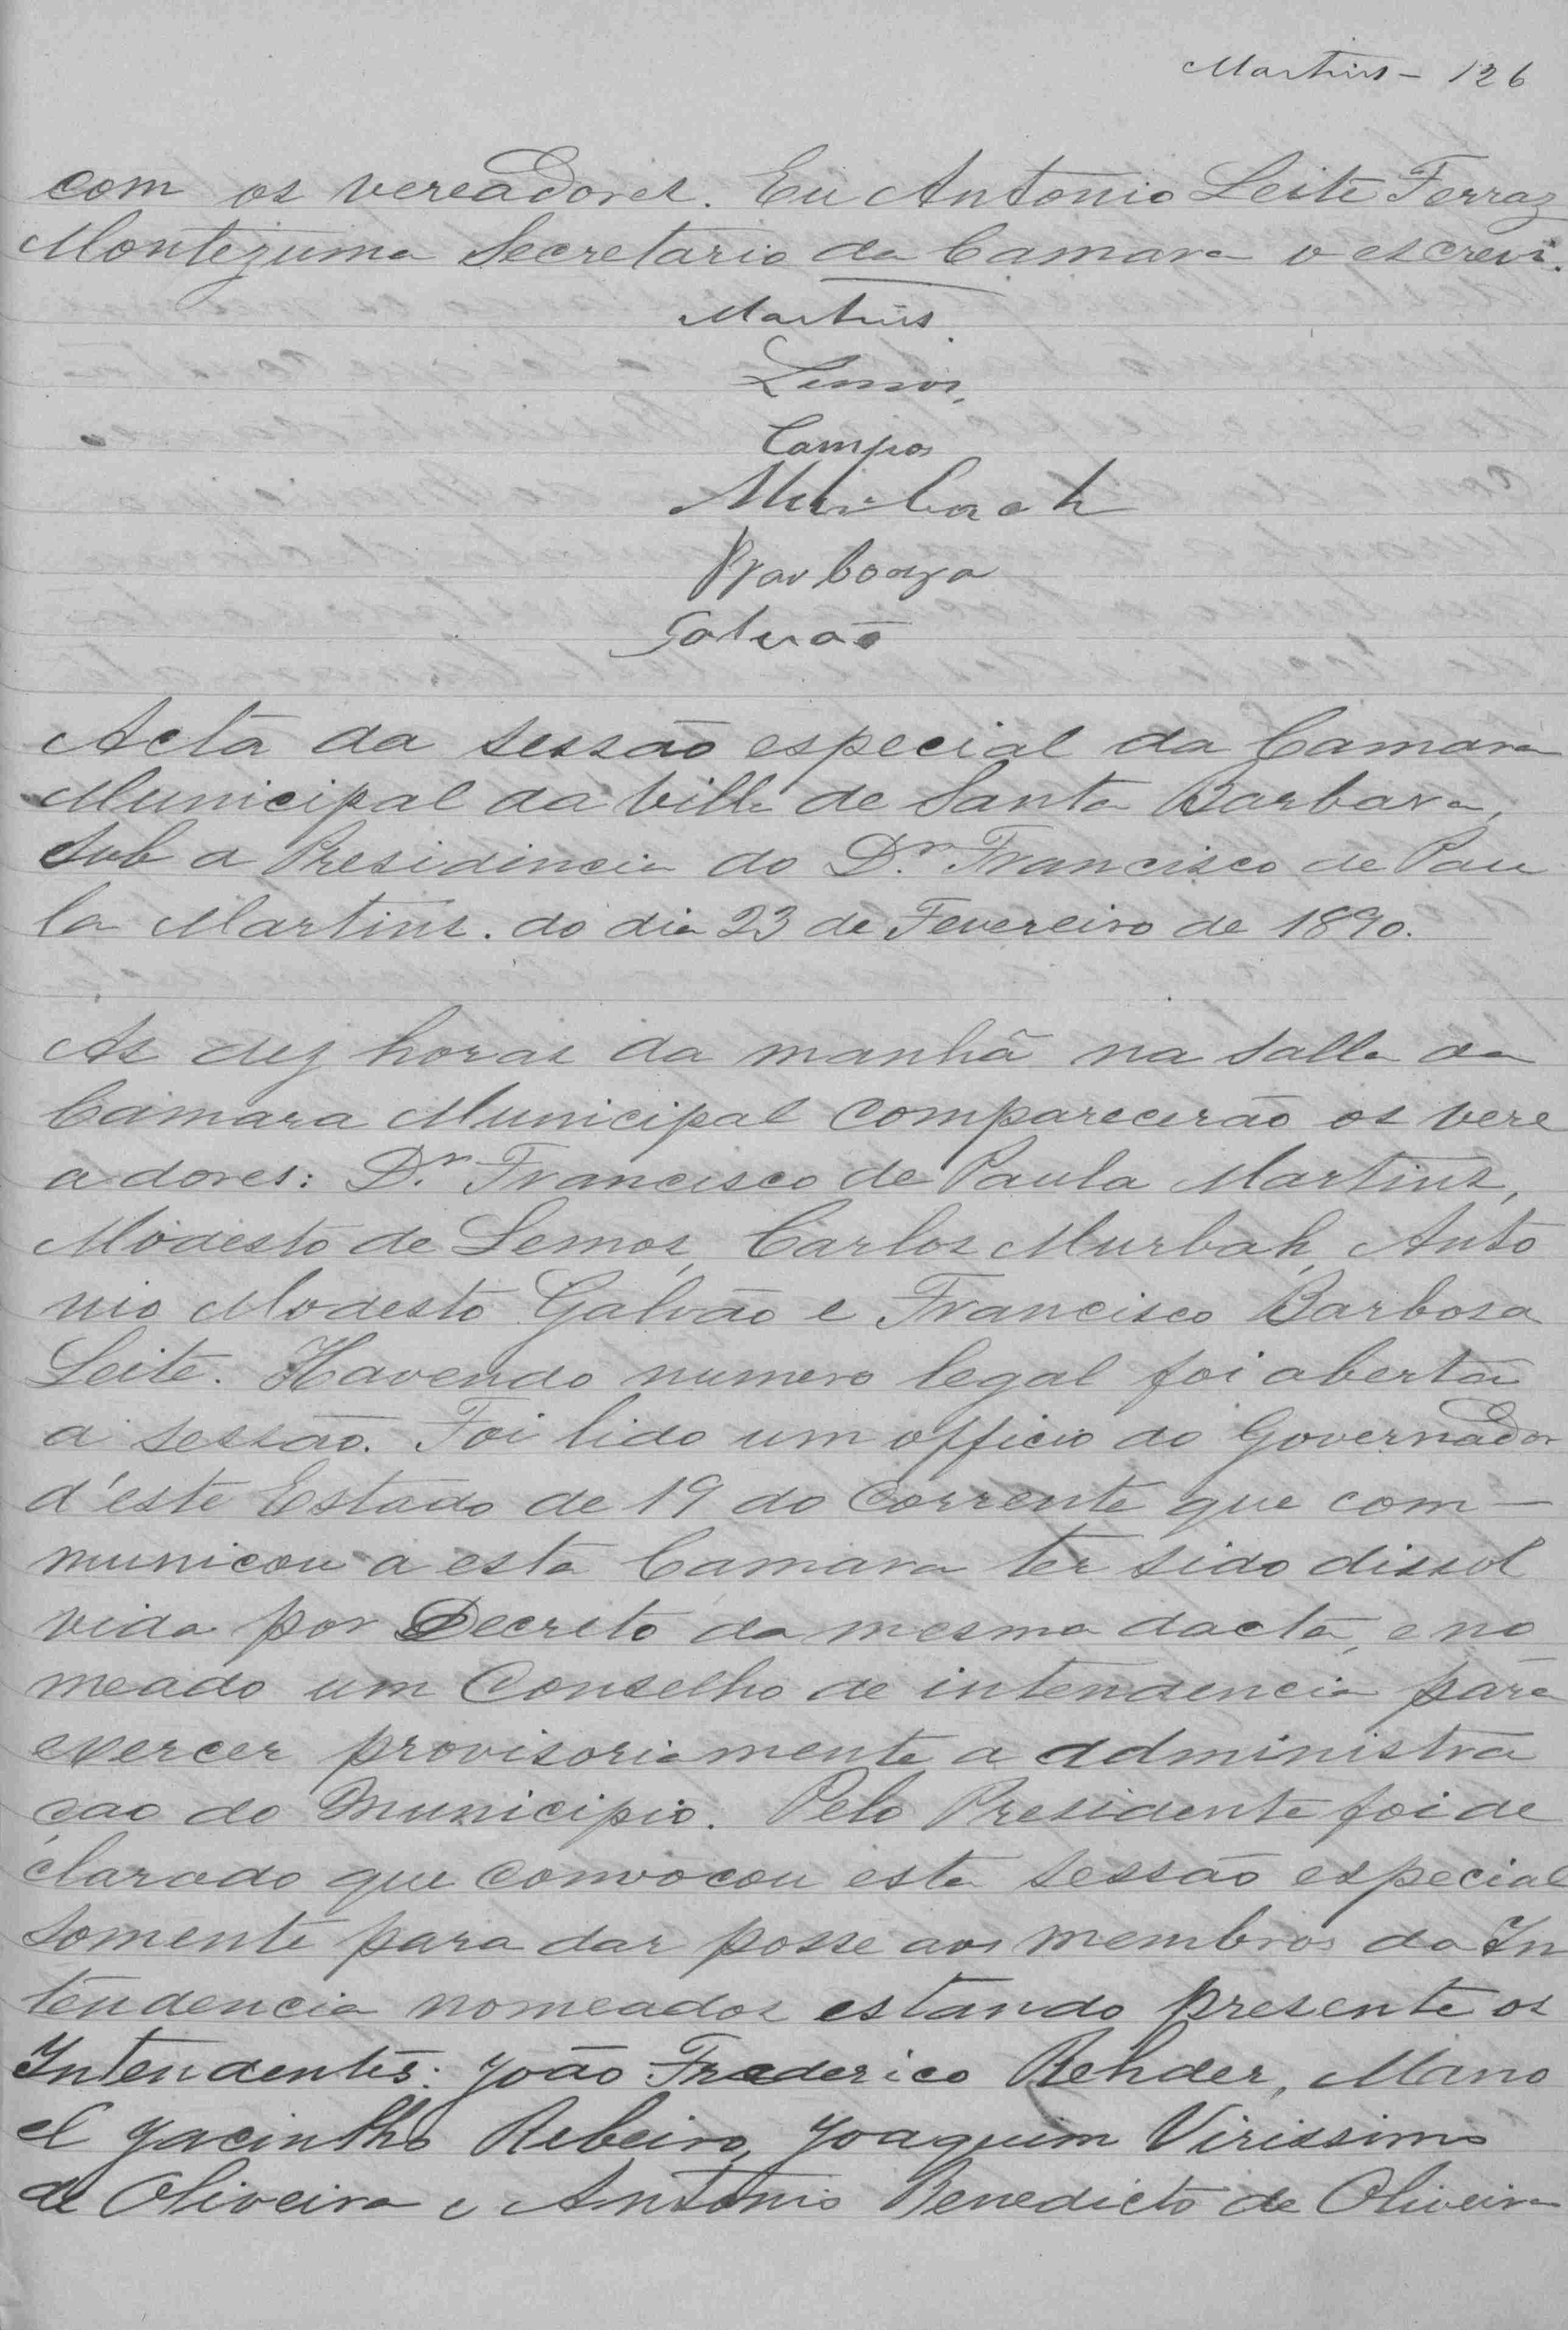 Martins - 126
com os vereadores. Eu Antonio Leite Ferraz
Montezuma Secretario da Camara o escrevi.
Martins
Lemos,
Campos
Murbach
Barboza
Galvão
Acta da sessão especial da Camara
Municipal da Villa de Santa Barbara,
sob a Presidincia do Dr. Francisco de Pau
la Martins. do dia 23 de Fevereiro de 1890.
As dez horas da manhã na salla da
Camara Municipal comparecerão os vere
adores: Dr. Francisco de Paula Martins,
Modesto de Lemos, Carlos Murbah, Anto
nio Modesto Galvão e Francisco Barbosa
Leite. Havendo numero legal foi aberta
a sessão. Foi lido um officio do Governador
d'este Estado de 19 do Corrente que com-
municou a esta Camara ter sido dissol
vida por Decreto da mesma dacta, e no
meado um Conselho de intendencia para
exercer provisoriamente a administra
ção do Municipio. Pelo Presidente foi de
clarado que convocou esta sessão especial
somente para dar posse aos membros da In
tendencia nomeados estando presente os
Intendentes: João Frederico Rehder, Mano
el Jacintho Ribeiro, Joaquim Virissimo
de Oliveira e Antonio Benedicto de Oliveira